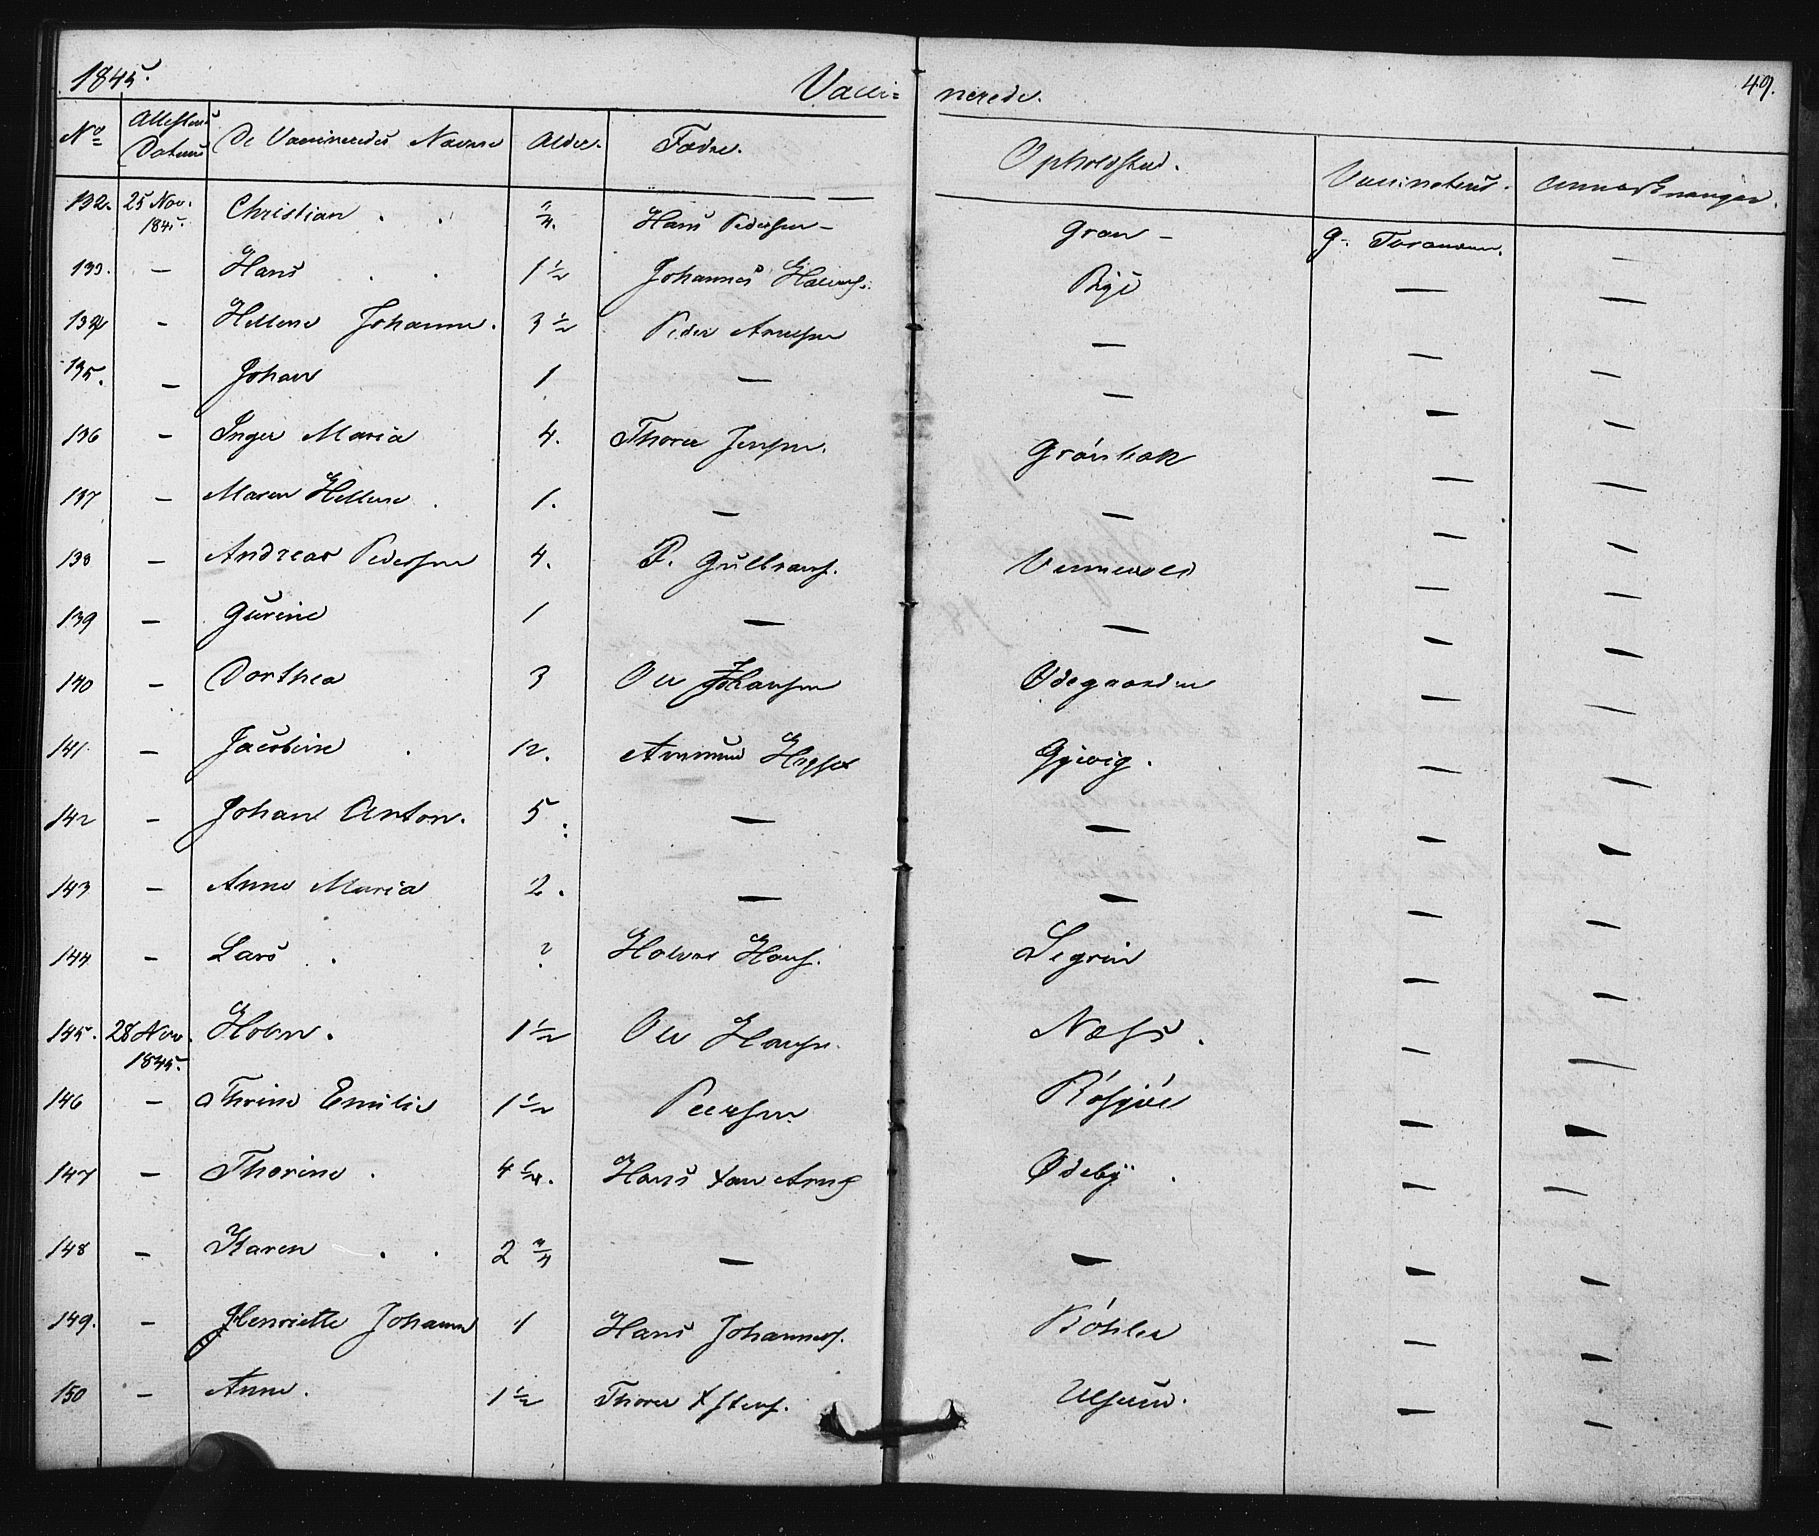 1845. Vacci= nerede. 49.
No Attestens Datum De Vaccineredes Navne Alder. Fædre. Opholdsted. Vaccinateur. Anmærkninger.
132. 25 Nov. 1845. Christian Hans Pedersen – Gran – G.
133. – Hans 1 1/2 Johannes Rye — —
134 – Hellene Johanne. 3 1/2 Peder Arnesen — — —
135. – Johan 1 — — — —
136 – Inger Maria 4. Thorer Jensen. Grønbæk — —
137 – Maren Hellene 1. — — — —
138 – Andreas Pedersen 4. P. Gulbrans. — —
139 – Gurine 1 — — — —
140 – Dorthea 3 Ole Johansen Ødegaarden — —
141. – Jacobine 12. Ammund Gjøvig. — —
142 – Johan Anton. 5 — — — —
143 – Anne Maria 2. — — — —
144 – Lars ? Hans. — —
145. 28 Nov. 1845. 1 1/2 Ole Hansen. Næss. — —
146 – Thrine Emilie 1 1/2 Peersen. — —
147 – Thorine. Hans Ødeby. — —
148 – Karen — — — —
149. – Henriette Johanne 1 Hans Johanness. Bøhler — —
150 – Anne. 1 1/2 Thorer — —